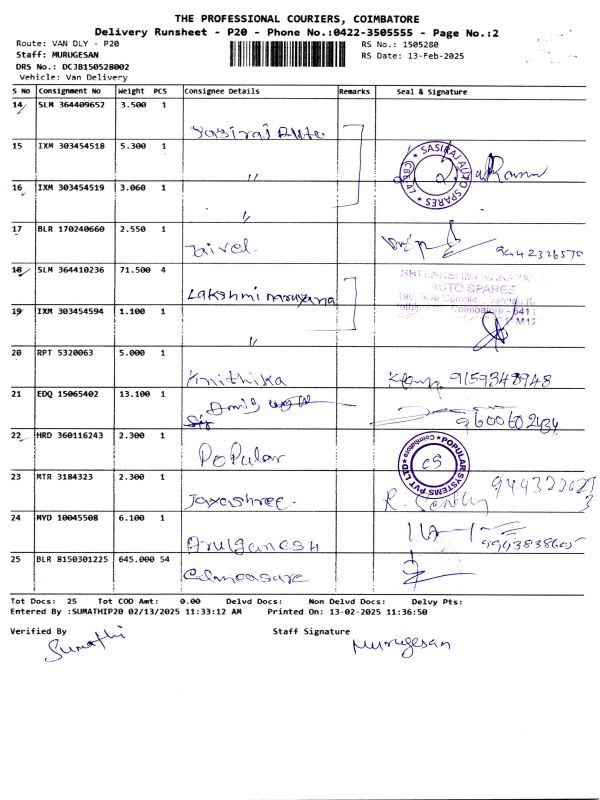 THE PROFESSIONAL COURIERS, COIMBATORE
Delivery Runsheet - P20 - Phone No.:0422-3505555 - Page No.:2
Route: VAN DLY - P20
RS No.: 1505280
Staff: MURUGESAN
RS Date: 13-Feb-2025
DRS No.: DCJB150528002
Vehicle: Van Delivery
S No Consignment No Weight PCS Consignee Details Remarks Seal & Signature
14 SLM 364409652 3.500 1
Sasiraj Auto
15 IXM 303454518 5.300 1
"
SASIRAJ AUTO SPARES
CBE-47
16 IXM 303454519 3.060 1
"
17 BLR 170240660 2.550 1
Jaivel
9442326570
18 SLM 364410236 71.500 4
Lakshmi narayana
AUTO SPARES
19 IXM 303454594 1.100 1
"
20 RPT 5320063 5.000 1
Knithika
9159348948
21 EDQ 15065402 13.100 1
9600602434
22 HRD 360116243 2.300 1
Popular
POPULAR SYSTEMS PVT LTD
Coimbatore
CS
23 MTR 3184323 2.300 1
Jayashree.
24 MYD 10045508 6.100 1
Arulganesh
25 BLR 8150301225 645.000 54
Tot Docs: 25 Tot COD Amt: 0.00 Delvd Docs: Non Delvd Docs: Delvy Pts:
Entered By :SUMATHIP20 02/13/2025 11:33:12 AM Printed On: 13-02-2025 11:36:50
Verified By Staff Signature
Sumathi Murugesan